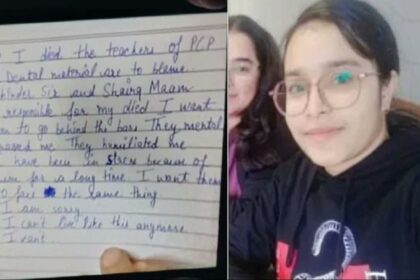 I died the teachers of PCP
Dental material are to blame.
hinder Sir and Maam
responsible for my died I want
m to go behind the bars They mental
assed me They humiliated me
have been in stress because of
em for a long time I want them
o face the same thing
I am sorry
I can't live like this anymore
I